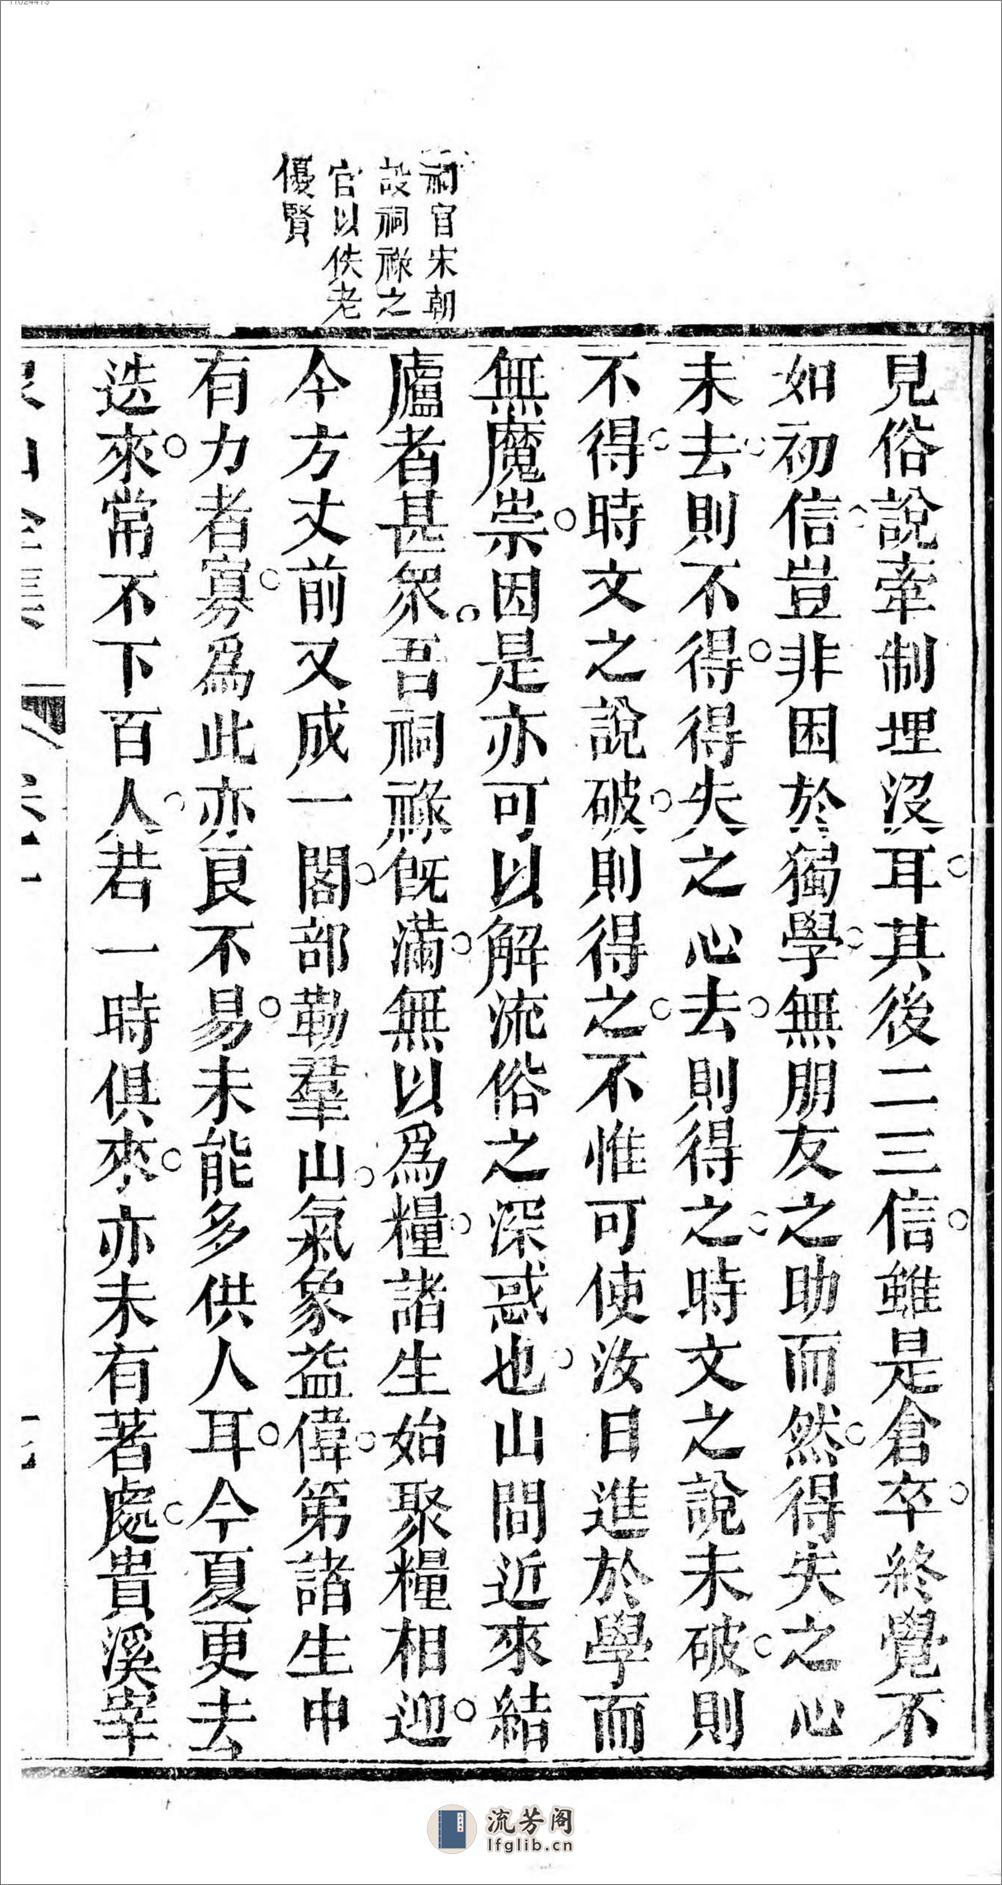 祠官宋朝
設祠祿之
官以佚老
優賢
見俗說牽制埋沒耳其後二三信雖是倉卒終覺不
如初信豈非困於獨學無朋友之助而然得失之心
未去則不得得失之心去則得之時文之說未破則
不得時文之說破則得之不惟可使汝日進於學而
無魔祟因是亦可以解流俗之深惑也山間近來結
廬者甚衆吾祠祿旣滿無以爲糧諸生始聚糧相迎
今方丈前又成一閣部勒羣山氣象益偉第諸生中
有力者寡爲此亦良不易未能多供人耳今夏更去
迭來常不下百人若一時俱來亦未有著處貴溪宰
流芳阁
lfglib.cn